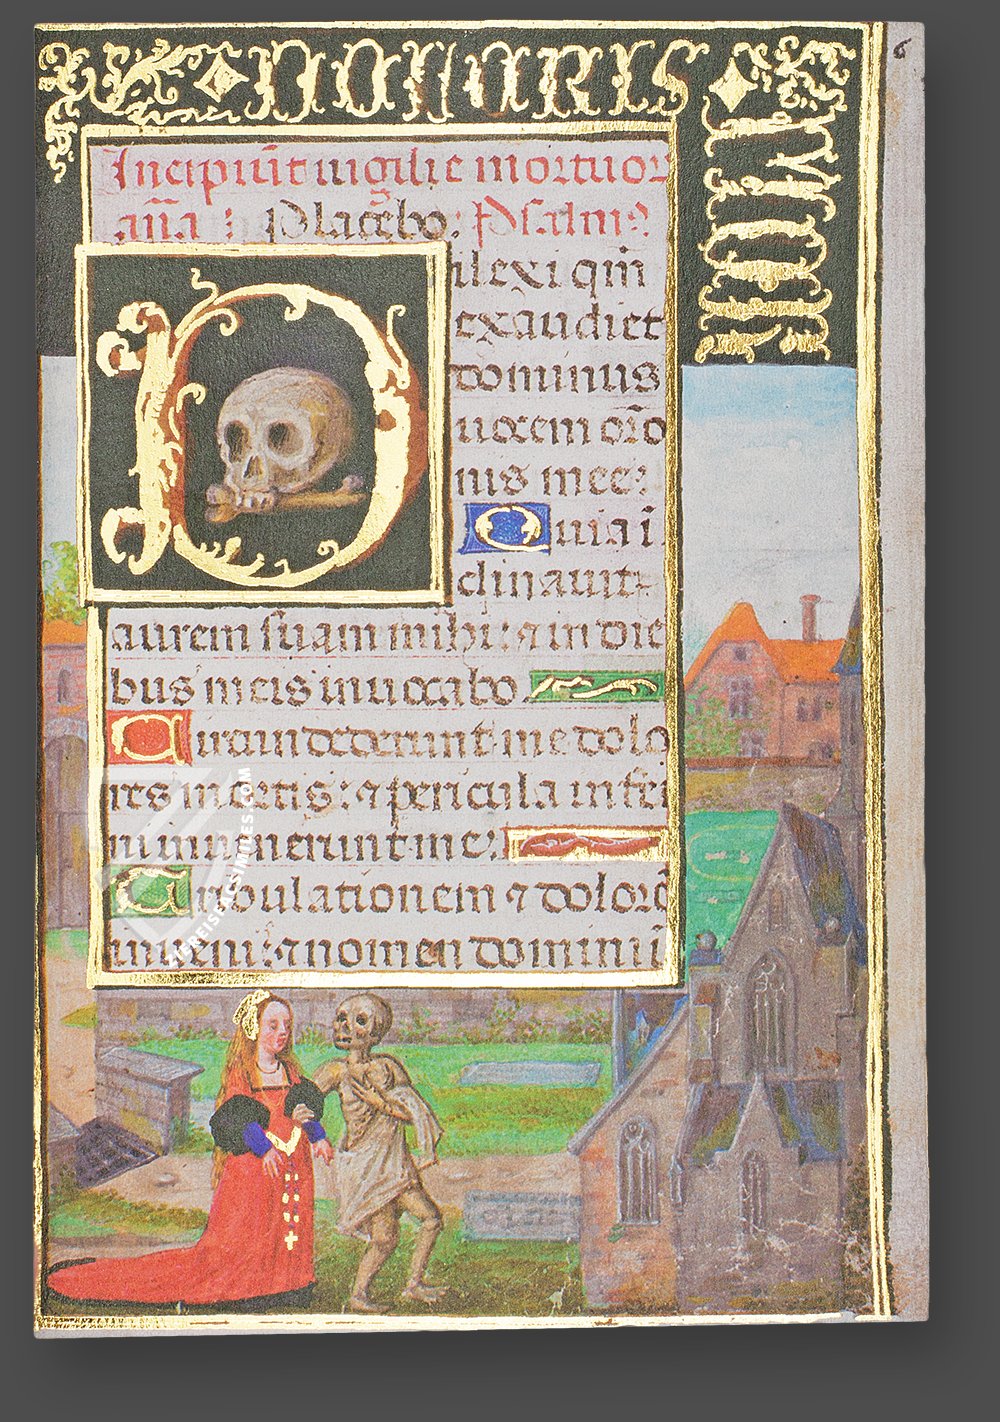 DOLORIS
6
MOR
Incipiūt uigilie mortuor
aña : Placebo : Psalm⁹
Dilexi qm̄
exaudiet
dominus
uocem orō
nis mee:
Quia ī
clinauit
aurem suam mihi : ⁊ in die
bus meis inuocabo
Circundederunt me dolo
res mortis : ⁊ pericula infer
ni inuenerunt me.
Tribulationem ⁊ dolorē
inueni : ⁊ nomen domini i
ZIEREISFACSIMILES.COM